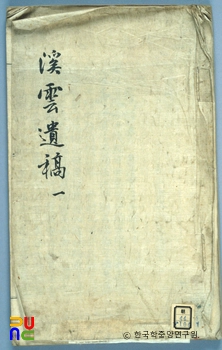 溪雲遺稿 一
ⓒ 한국학중앙연구원